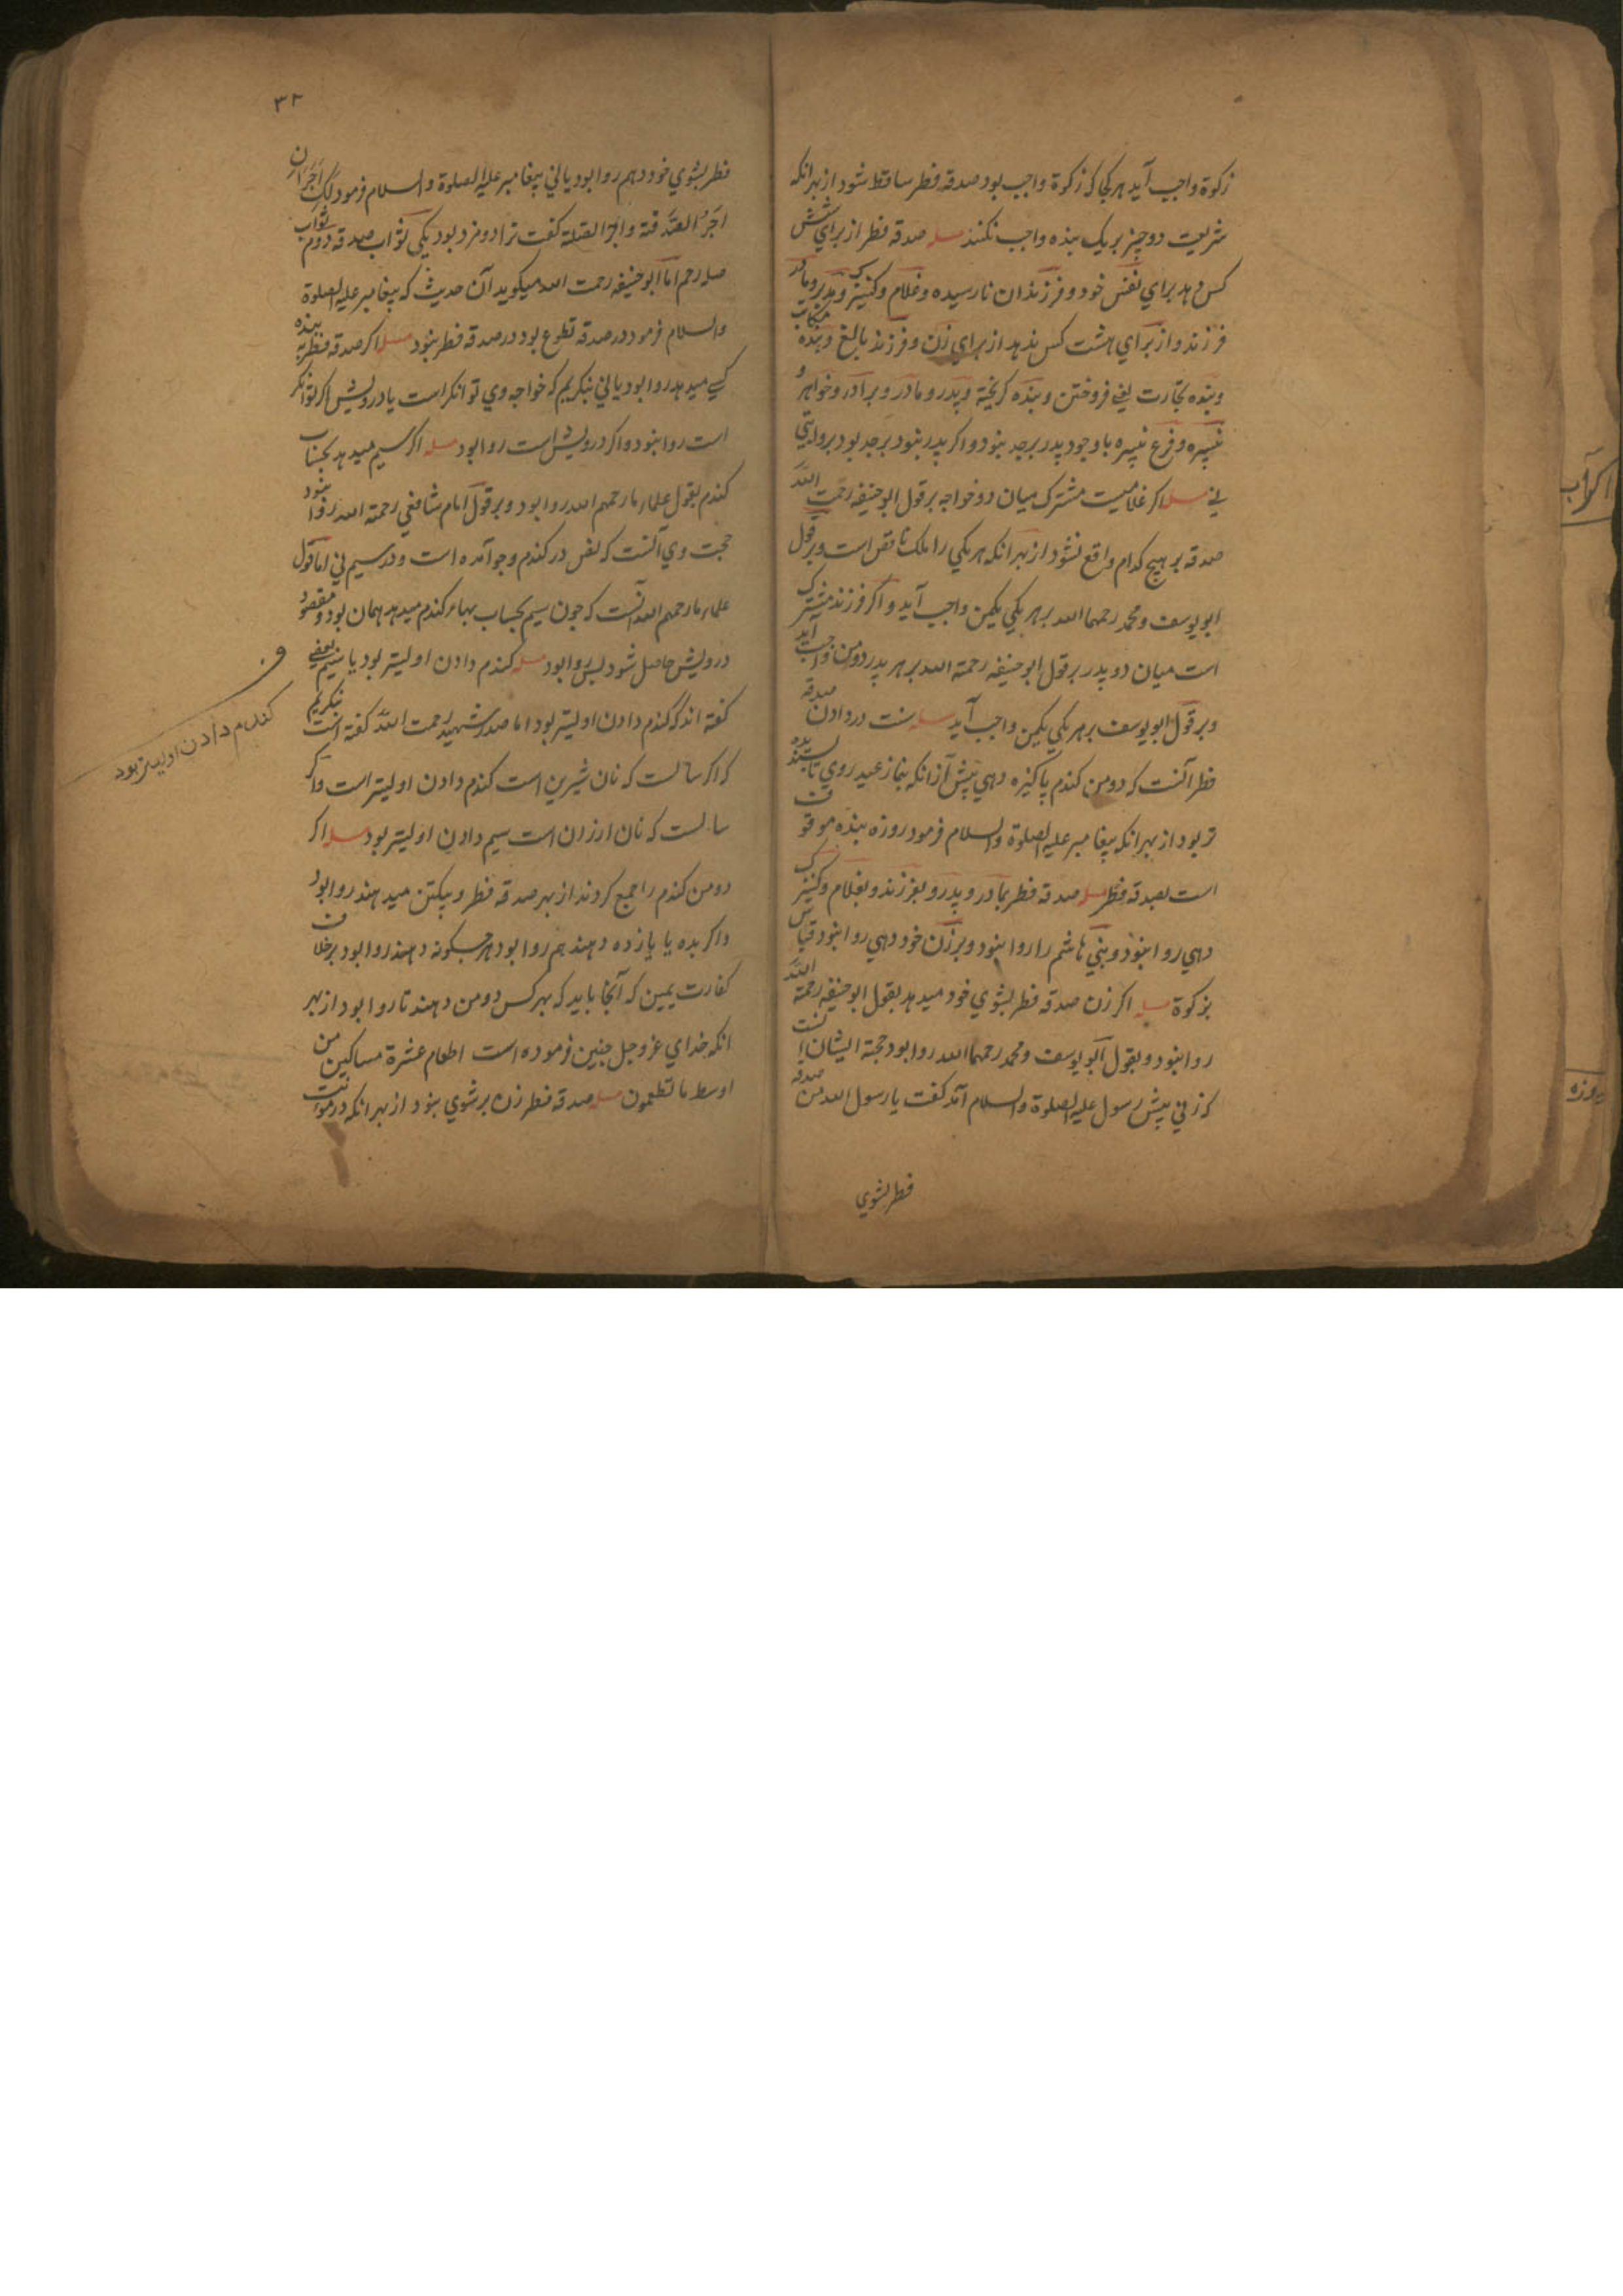 زکوة واجب آید هر کجا که زکوة واجب بود صدقه فطر ساقط شود از بهر انکه
شریعت دو چیز بر یک بنده واجب نکند مسله صدقه فطر از برای شش
کس دهد برای نفس خود و فرزندان نارسیده و غلام و کنیزک و پدر و مادر
فرزند و از برای هشت کس ندهد از برای زن و فرزند بالغ و بنده مکاتب
وبنده تجارت یعنی فروختن و بنده کریخته و پدر و مادر و برادر و خواهر و
نبیره و فرع نبیره با وجود پدر بر جد نبود و اکر پدر نبود بر جد بود بروایتی
نی مسله اکر غلامیست مشترک میان دو خواجه بر قول ابو حنیفه رحمت الله
صدقه بر هیچ کدام واقع نشود از بهر انکه هر یکی را ملک ناقص است و بر قول
ابو یوسف و محمد رحمهما الله بر هر یکی یکمن واجب آید و اکر فرزند مشترک
است میان دو پدر بر قول ابو حنیفه رحمة الله بر هر پدر دو من واجب اید
و بر قول ابو یوسف بر هر یکی یکمن واجب آید مسله سنت در دادن صدقه
فطر آنست که دو من کندم پاکیزه دهی پیش از انکه بنماز عید روی تا پسندیده
تر بود از بهر انکه پیغامبر علیه الصلوة والسلام فرمود روزه بنده موقوف
است بصدقه فطر مسله صدقه فطر بمادر و پدر و بفرزند و بغلام و کنیزک
دهی روا نبود و بنی هاشم را روا نبود و بر زن خود دهی روا نبود قیاس
بزکوة مسله اکر زن صدقه فطر بشوی خود میدهد بقول ابو حنیفه رحمة الله
روا نبود و بقول ابو یوسف و محمد رحمهما الله روا بود حجة ایشان انست
که زنی پیش رسول علیه الصلوة والسلام آمد کفت یا رسول الله من صدقه
فطر بشوی
۳۲
فطر بشوی خود دهم روا بود یا نی پیغامبر علیه الصلوة والسلام فرمود لک اجران
اجر الصدقة واجر الصلة کفت ترا دو مزد بود یکی ثواب صدقه دوم ثواب
صله رحم اما ابو حنیفه رحمت الله میکوید آن حدیث که پیغامبر علیه الصلوة
والسلام فرمود در صدقه تطوع بود در صدقه فطر نبود مسله اکر صدقه فطر به بنده
کسی میدهد روا بود یا نی بنکریم که خواجه وی توانکر است یا درویش اکر توانکر
است روا نبود و اکر درویش است روا بود مسله اکر سیم میدهد بحساب
کندم بقول علماء ما رحمهم الله روا بود و بر قول امام شافعی رحمة الله روا نبود
حجت وی آنست که نص در کندم و جو آمده است و در سیم نی اما قول
علماء ما رحمهم الله آنست که چون سیم بحساب بهاء کندم میدهد همان بود و مقصود
درویش حاصل شود پس روا بود مسله کندم دادن اولیتر بود یا سیم بعضی
کفته اند که کندم دادن اولیتر بود اما صدر شهید رحمت الله کفته است بنکریم
که اکر سالست که نان شیرین است کندم دادن اولیتر است و اکر
سالست که نان ارزان است سیم دادن اولیتر بود مسله اکر
دو من کندم را جمع کردند از بهر صدقه فطر و بیکتن میدهند روا بود
و اکر بده یا یازده دهند هم روا بود هر چکونه دهند روا بود بر خلاف
کفارت یمین که آنجا باید که بهر کس دو من دهند تا روا بود از بهر
انکه خدای عز وجل چنین فرموده است اطعام عشرة مساکین من
اوسط ما تطعمون مسله صدقه فطر زن بر شوی نبود از بهر انکه در
ف
کندم دادن اولیتر بود